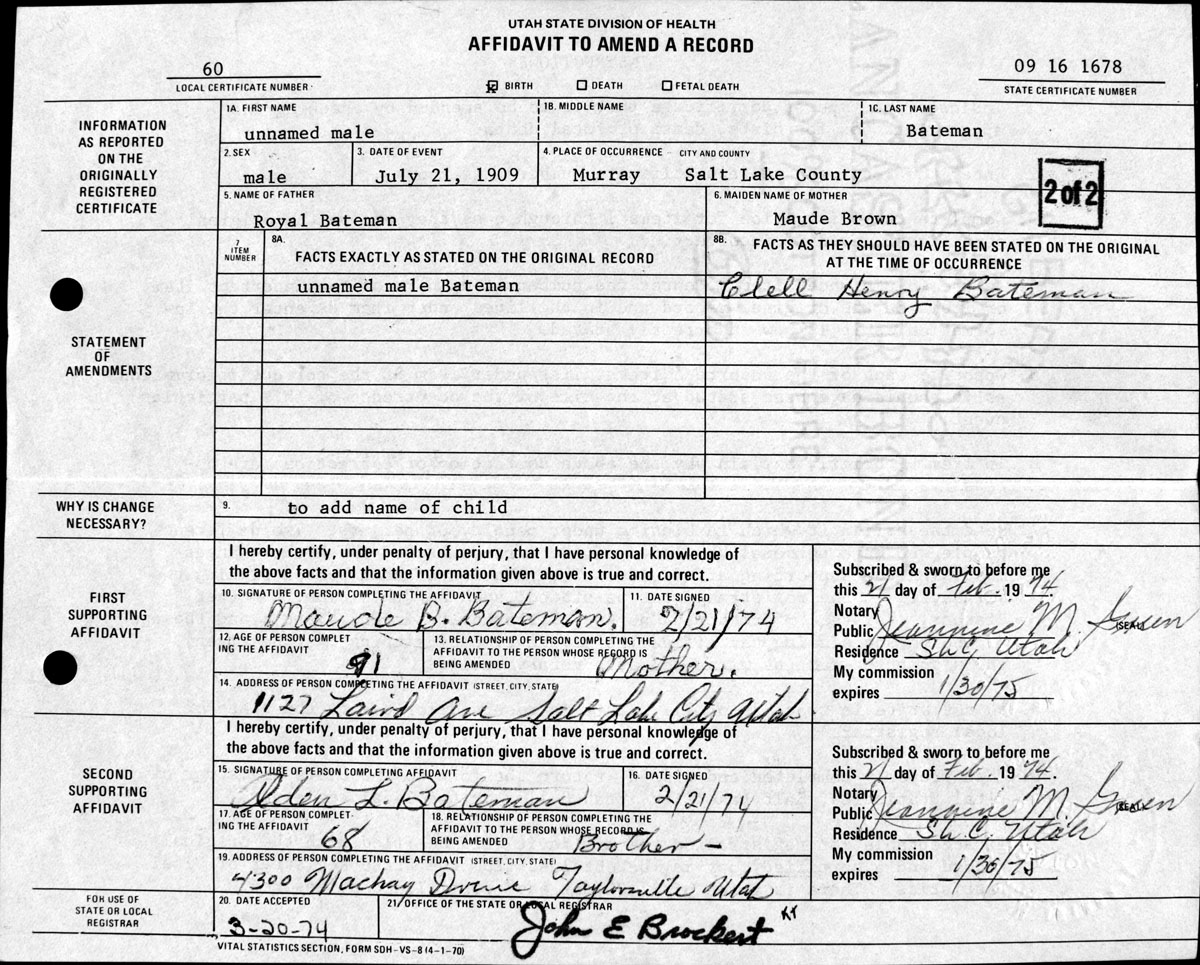 UTAH STATE DIVISION OF HEALTH
AFFIDAVIT TO AMEND A RECORD
60
LOCAL CERTIFICATE NUMBER
BIRTH DEATH FETAL DEATH
09 16 1678
STATE CERTIFICATE NUMBER
INFORMATION AS REPORTED ON THE ORIGINALLY REGISTERED CERTIFICATE
1A. FIRST NAME 1B. MIDDLE NAME 1C. LAST NAME
unnamed male Bateman
2. SEX 3. DATE OF EVENT 4. PLACE OF OCCURRENCE - CITY AND COUNTY
male July 21, 1909 Murray Salt Lake County
2 of 2
5. NAME OF FATHER 6. MAIDEN NAME OF MOTHER
Royal Bateman Maude Brown
STATEMENT OF AMENDMENTS
7 ITEM NUMBER
8A. FACTS EXACTLY AS STATED ON THE ORIGINAL RECORD
8B. FACTS AS THEY SHOULD HAVE BEEN STATED ON THE ORIGINAL AT THE TIME OF OCCURRENCE
unnamed male Bateman Clell Henry Bateman
WHY IS CHANGE NECESSARY?
9. to add name of child
FIRST SUPPORTING AFFIDAVIT
I hereby certify, under penalty of perjury, that I have personal knowledge of
the above facts and that the information given above is true and correct.
10. SIGNATURE OF PERSON COMPLETING THE AFFIDAVIT 11. DATE SIGNED
Maude B. Bateman. 2/21/74
12. AGE OF PERSON COMPLETING THE AFFIDAVIT
91
13. RELATIONSHIP OF PERSON COMPLETING THE AFFIDAVIT TO THE PERSON WHOSE RECORD IS BEING AMENDED
Mother.
14. ADDRESS OF PERSON COMPLETING THE AFFIDAVIT (STREET, CITY, STATE)
1127 Laird Ave Salt Lake City Utah
Subscribed & sworn to before me
this 21 day of Feb. 1974.
Notary
Public Jeannine M. Green (SEAL)
Residence S.L.C. Utah
My commission
expires 1/30/75
SECOND SUPPORTING AFFIDAVIT
I hereby certify, under penalty of perjury, that I have personal knowledge of
the above facts and that the information given above is true and correct.
15. SIGNATURE OF PERSON COMPLETING AFFIDAVIT 16. DATE SIGNED
Alden L. Bateman 2/21/74
17. AGE OF PERSON COMPLETING THE AFFIDAVIT
68
18. RELATIONSHIP OF PERSON COMPLETING THE AFFIDAVIT TO THE PERSON WHOSE RECORD IS BEING AMENDED
Brother -
19. ADDRESS OF PERSON COMPLETING THE AFFIDAVIT (STREET, CITY, STATE)
4300 Mackay Drive Taylorsville Utah
Subscribed & sworn to before me
this 21 day of Feb. 1974.
Notary
Public Jeannine M. Green (SEAL)
Residence S.L.C. Utah
My commission
expires 1/30/75
FOR USE OF STATE OR LOCAL REGISTRAR
20. DATE ACCEPTED 21. OFFICE OF THE STATE OR LOCAL REGISTRAR
3-20-74 John E Brockert
VITAL STATISTICS SECTION, FORM SDH-VS-8 (4-1-70)